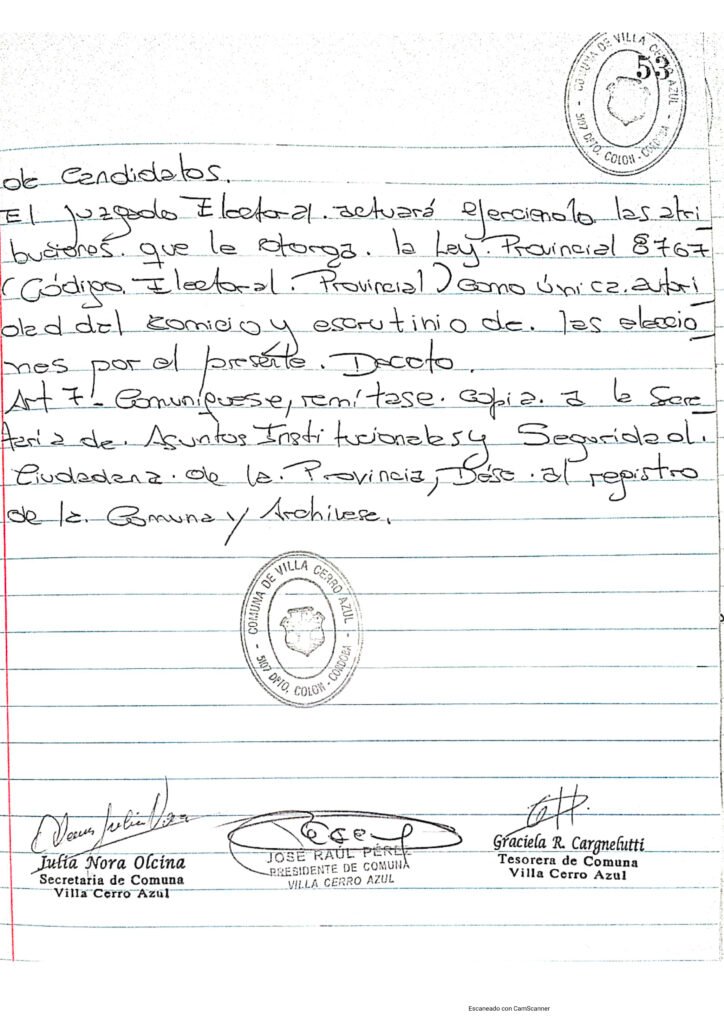 COMUNA DE VILLA CERRO AZUL
53
5107 DPTO. COLON - CORDOBA
de Candidatos.
El juzgado Electoral. actuará ejerciendo las atri
buciones. que le otorga. la Ley. Provincial 8767
(Código. Electoral. Provincial) como única. autori
dad del comicio y escrutinio de. las eleccio
nes por el presente. Decreto.
Art 7- Comuníquese, remítase. copia. a la Secre
taria de. Asuntos Institucionales y Seguridad.
Ciudadana. de la. Provincia, Dése. al registro
de la. Comuna y Archívese.
COMUNA DE VILLA CERRO AZUL
5107 DPTO. COLON - CORDOBA
Julia Nora Olcina
Secretaria de Comuna
Villa Cerro Azul
JOSE RAÚL PÉREZ
PRESIDENTE DE COMUNA
VILLA CERRO AZUL
Graciela R. Cargnelutti
Tesorera de Comuna
Villa Cerro Azul
Escaneado con CamScanner